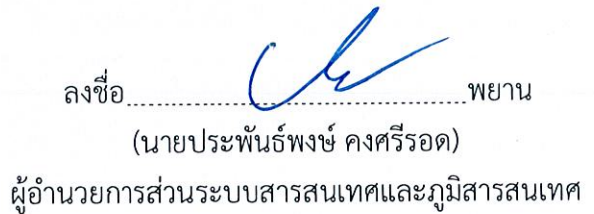 ลงชื่อ..........................................พยาน
(นายประพันธ์พงษ์ คงศรีรอด)
ผู้อำนวยการส่วนระบบสารสนเทศและภูมิสารสนเทศ